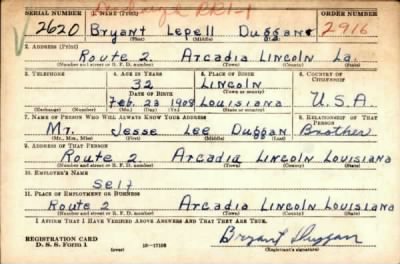 SERIAL NUMBER 1. NAME (Print) ORDER NUMBER
2620 Bryant Lepell Duggan 2916
(First) (Middle) (Last)
2. ADDRESS (Print)
Route 2. Arcadia Lincoln La.
(Number and street or R. F. D. number) (Town) (County) (State)
3. TELEPHONE 4. AGE IN YEARS 5. PLACE OF BIRTH 6. COUNTRY OF CITIZENSHIP
32 Lincoln
DATE OF BIRTH (Town or county)
Feb. 23 1908 Louisiana U.S.A.
(Exchange) (Number) (Mo.) (Day) (Yr.) (State or country)
7. NAME OF PERSON WHO WILL ALWAYS KNOW YOUR ADDRESS 8. RELATIONSHIP OF THAT PERSON
Mr. Jesse Lee Duggan Brother
(Mr., Mrs., Miss) (First) (Middle) (Last)
9. ADDRESS OF THAT PERSON
Route 2 Arcadia Lincoln Louisiana
(Number and street or R. F. D. number) (Town) (County) (State)
10. EMPLOYER'S NAME
Self
11. PLACE OF EMPLOYMENT OR BUSINESS
Route 2 Arcadia Lincoln Louisiana
(Number and street or R. F. D. number) (Town) (County) (State)
I AFFIRM THAT I HAVE VERIFIED ABOVE ANSWERS AND THAT THEY ARE TRUE.
REGISTRATION CARD
D. S. S. Form 1 (over) Bryant Duggan
(Registrant's signature)